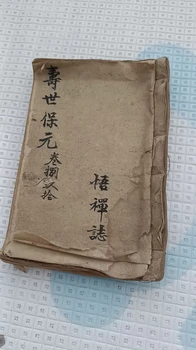 壽世保元
卷捌拾
悟禪誌